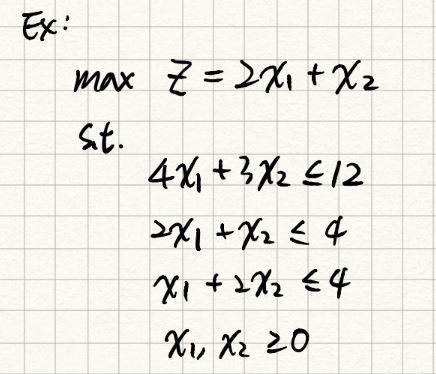 Ex:
max Z = 2x₁ + x₂
s.t.
4x₁ + 3x₂ ≤ 12
2x₁ + x₂ ≤ 4
x₁ + 2x₂ ≤ 4
x₁, x₂ ≥ 0